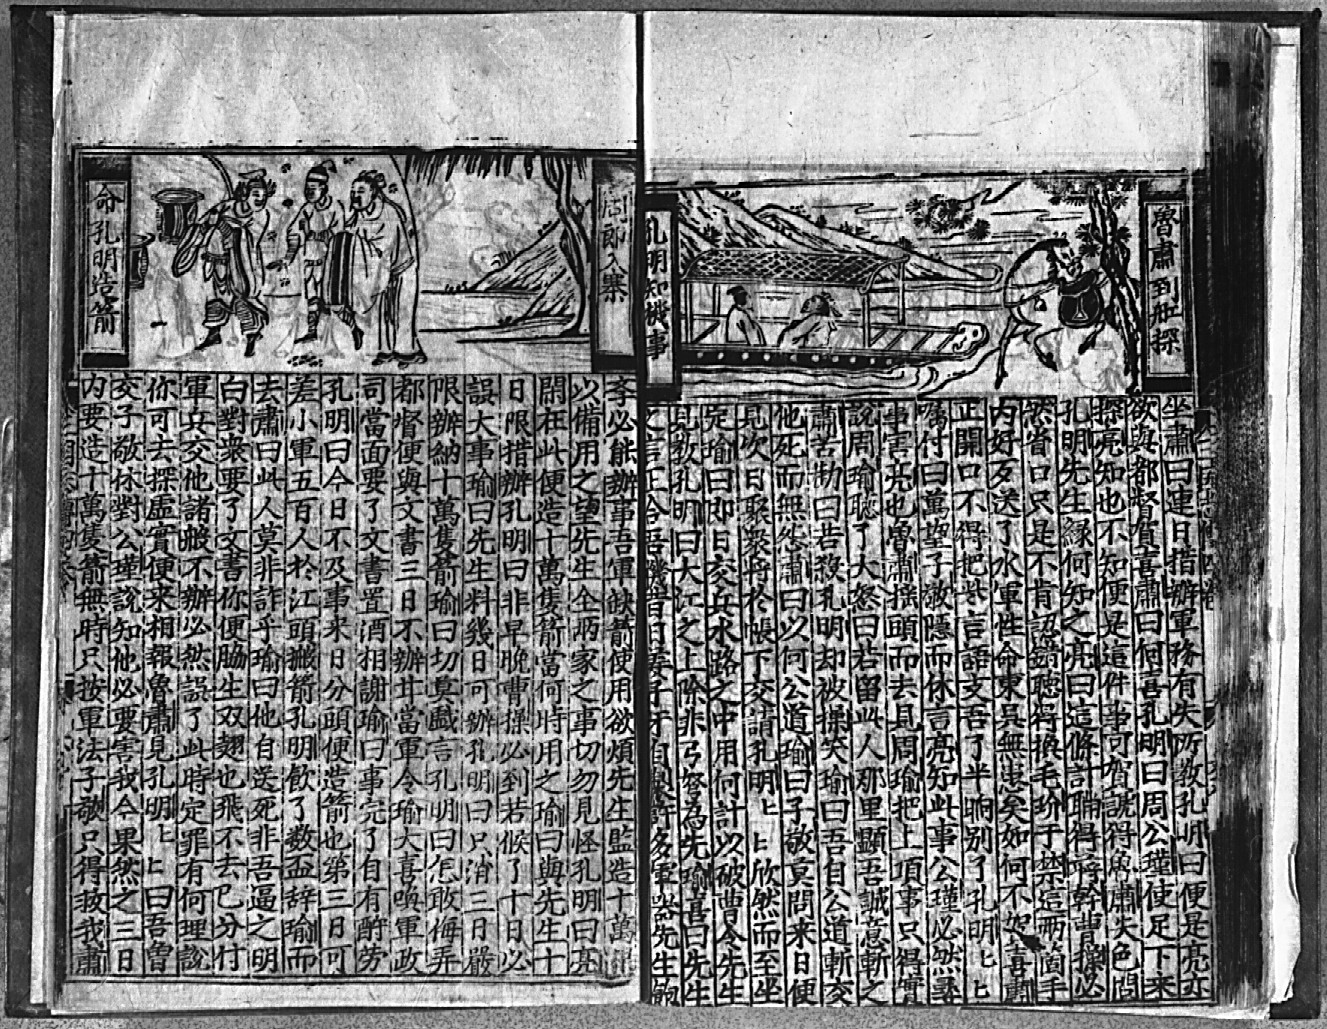 魯肅到船探
孔明知機事
坐肅曰連日措辦軍務有失所教孔明曰便是亮亦
欲與都督賀喜肅曰何喜孔明曰周公瑾使足下來
探亮知也不知便是這件事可賀諕得魯肅失色問
孔明先生緣何知之亮曰這條計只瞞得蔣幹曹操必
然省口只是不肯認錯聽得換毛玠于禁這兩箇手
內好歹送了水軍性命東吳無患矣如何不賀喜肅
正開口不得把些言語支吾了半晌別了孔明
囑付曰萬望子敬隱而休言亮知此事公瑾必然尋
事害亮也魯肅摇頭而去見周瑜把上項事只得實
說周瑜聽了大怒曰若留此人那里顯吾誠意斬之
肅苦勸曰若殺孔明却被操笑瑜曰吾自公道斬交
他死而無怨肅曰以何公道瑜曰子敬莫問來日便
見次日聚衆將於帳下交請孔明上上欣然而至坐
定瑜曰即日交兵水路之中用何計以破曹令先生
見教孔明曰大江之上除非弓弩為先瑜喜曰先生
之言正合吾機昔日姜子牙自製許多軍器先生飽
周郎入寨
命孔明造箭
李必能辦事吾軍缺箭使用欲煩先生監造十萬
以備用之望先生全兩家之事切勿見怪孔明曰亮
閑在此便造十萬隻箭當何時用之瑜曰與先生十
日限措辦孔明曰非早晚曹操必到若候了十日必
誤大事瑜曰先生料幾日可辦孔明曰只消三日嚴
限辦納十萬隻箭瑜曰切莫戲言孔明曰怎敢侮弄
都督便與文書三日不辦甘當軍令瑜大喜喚軍政
司當面要了文書置酒相謝瑜曰事完了自有酧勞
孔明曰今日不及事來日分頭便造箭也第三日可
差小軍五百人於江頭搬箭孔明飲了數盃辞瑜而
去肅曰此人莫非詐乎瑜曰他自送死非吾逼之明
白對衆要了文書你便脇生双翅也飛不去已分付
軍兵交他諸般不辦必然誤了此時定罪有何理說
你可去探虛實便來相報魯肅見孔明上上曰吾曾
交子敬休對公瑾說知他必要害我今果然之三日
內要造十萬隻箭無時只按軍法子敬只得救我肅